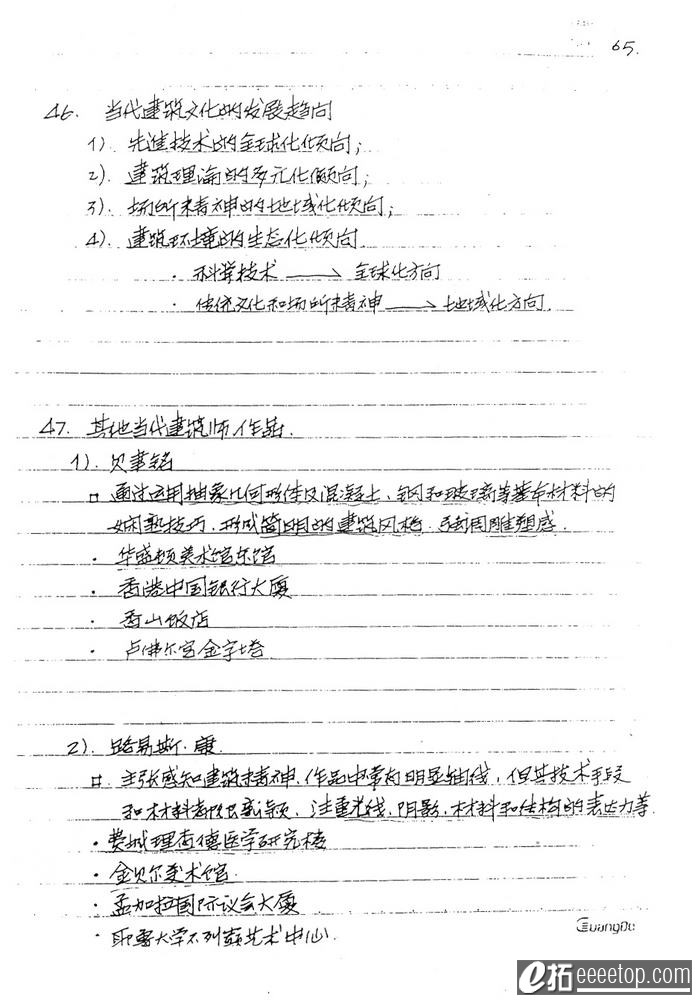 65.
46. 当代建筑文化的发展趋向
1). 先进技术的全球化倾向;
2). 建筑理论的多元化倾向;
3). 场所精神的地域化倾向;
4). 建筑环境的生态化倾向
· 科学技术 → 全球化方向
· 传统文化和场所精神 → 地域化方向.
47. 其他当代建筑师作品.
1). 贝聿铭
□ 通过运用抽象几何形体及混凝土、钢和玻璃等基本材料的
娴熟技巧, 形成简明的建筑风格. 雕塑感.
· 华盛顿美术馆东馆
· 香港中国银行大厦
· 香山饭店
· 卢佛尔宫金字塔
2). 路易斯·康
□ 主张感知建筑精神, 作品中常有明显轴线, 但其技术手段
和材料都很新颖, 注重光线, 阴影, 材料和结构的表达力等.
· 费城理查德医学研究楼
· 金贝尔美术馆.
· 孟加拉国际议会大厦
· 耶鲁大学不列颠艺术中心.
GuangBo
e拓 eeeetop.com